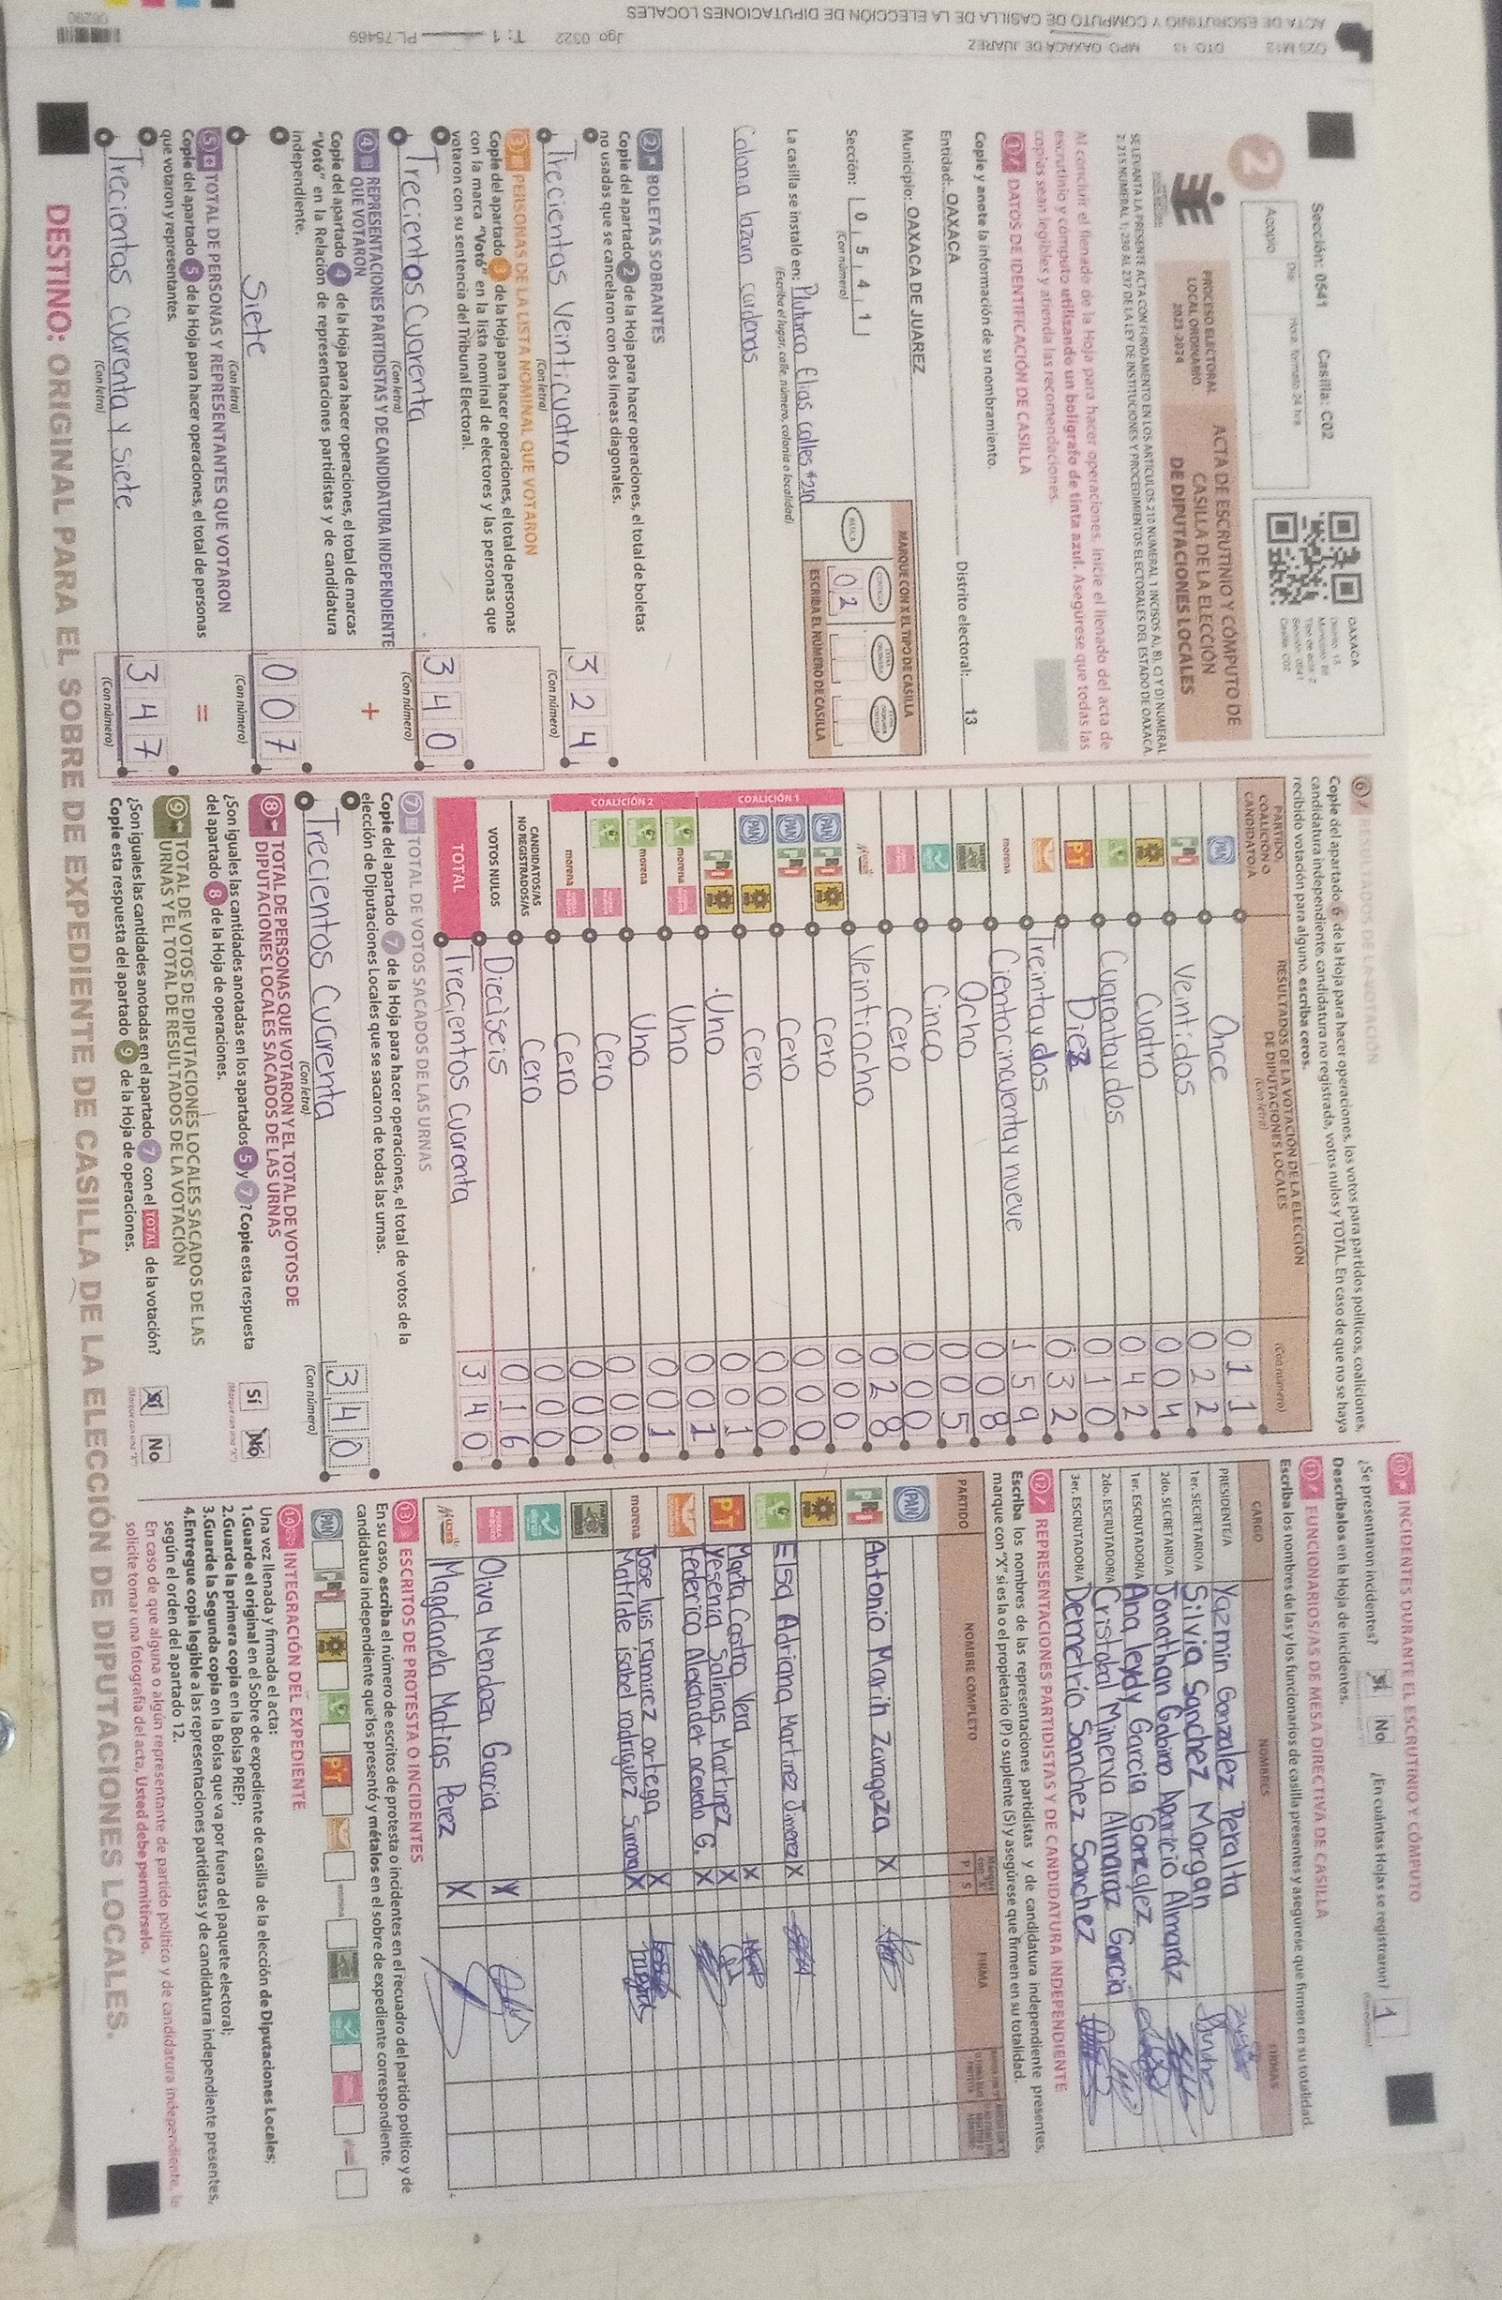 Sección: 0541 Casilla: C02
OAXACA
2
Acopio
Día
Hora, formato 24 hrs
PROCESO ELECTORAL
LOCAL ORDINARIO
2023-2024
ACTA DE ESCRUTINIO Y CÓMPUTO DE
CASILLA DE LA ELECCIÓN
DE DIPUTACIONES LOCALES
Al concluir el llenado de la Hoja para hacer operaciones, inicie el llenado del acta de
escrutinio y cómputo utilizando un bolígrafo de tinta azul. Asegúrese que todas las
copias sean legibles y atienda las recomendaciones.
1 DATOS DE IDENTIFICACIÓN DE CASILLA
Copie y anote la información de su nombramiento.
Entidad: OAXACA Distrito electoral: 13
Municipio: OAXACA DE JUAREZ
Sección: 0 5 4 1
(Con número)
MARQUE CON X EL TIPO DE CASILLA
BÁSICA
ESCRIBA EL NÚMERO DE CASILLA
02
La casilla se instaló en: Plutarco Elias calles #210
(Escriba el lugar, calle, número, colonia o localidad)
Colonia lazaro cardenas
2 BOLETAS SOBRANTES
Copie del apartado 2 de la Hoja para hacer operaciones, el total de boletas
no usadas que se cancelaron con dos líneas diagonales.
Trecientas veinticuatro 3 2 4
(Con letra) (Con número)
3 PERSONAS DE LA LISTA NOMINAL QUE VOTARON
Copie del apartado 3 de la Hoja para hacer operaciones, el total de personas
con la marca "Votó" en la lista nominal de electores y las personas que
votaron con su sentencia del Tribunal Electoral.
Trecientos Cuarenta 3 4 0
(Con letra) (Con número)
4 REPRESENTACIONES PARTIDISTAS Y DE CANDIDATURA INDEPENDIENTE
QUE VOTARON
+
Copie del apartado 4 de la Hoja para hacer operaciones, el total de marcas
"Votó" en la Relación de representaciones partidistas y de candidatura
independiente.
Siete 0 0 7
(Con letra) (Con número)
5 TOTAL DE PERSONAS Y REPRESENTANTES QUE VOTARON
=
Copie del apartado 5 de la Hoja para hacer operaciones, el total de personas
que votaron y representantes.
Trecientas cuarenta y siete 3 4 7
(Con letra) (Con número)
6 RESULTADOS DE LA VOTACIÓN
Copie del apartado 6 de la Hoja para hacer operaciones, los votos para partidos políticos, coaliciones,
candidatura independiente, candidatura no registrada, votos nulos y TOTAL. En caso de que no se haya
recibido votación para alguno, escriba ceros.
PARTIDO,
COALICIÓN O
CANDIDATO/A
RESULTADOS DE LA VOTACIÓN DE LA ELECCIÓN
DE DIPUTACIONES LOCALES
(Con letra)
(Con número)
PAN Once 0 1 1
PRI Veintidos 0 2 2
PRD Cuatro 0 0 4
Cuarenta y dos 0 4 2
PT Diez 0 1 0
Treinta y dos 0 3 2
morena Ciento cincuenta y nueve 1 5 9
Ocho 0 0 8
Cinco 0 0 5
Cero 0 0 0
Veintiocho 0 2 8
COALICIÓN 1
PAN PRI PRD Cero 0 0 0
PAN PRI Cero 0 0 0
PAN PRD Cero 0 0 0
PRI PRD Uno 0 0 1
COALICIÓN 2
morena Uno 0 0 1
morena Uno 0 0 1
Cero 0 0 0
morena Cero 0 0 0
CANDIDATOS/AS
NO REGISTRADOS/AS
Cero 0 0 0
VOTOS NULOS Dieciseis 0 1 6
TOTAL Trecientos Cuarenta 3 4 0
7 TOTAL DE VOTOS SACADOS DE LAS URNAS
Copie del apartado 7 de la Hoja para hacer operaciones, el total de votos de la
elección de Diputaciones Locales que se sacaron de todas las urnas.
Trecientos Cucarenta 3 4 0
(Con letra) (Con número)
8 TOTAL DE PERSONAS QUE VOTARON Y EL TOTAL DE VOTOS DE
DIPUTACIONES LOCALES SACADOS DE LAS URNAS
¿Son iguales las cantidades anotadas en los apartados 5 y 7? Copie esta respuesta
del apartado 8 de la Hoja de operaciones.
Sí No
9 TOTAL DE VOTOS DE DIPUTACIONES LOCALES SACADOS DE LAS
URNAS Y EL TOTAL DE RESULTADOS DE LA VOTACIÓN
¿Son iguales las cantidades anotadas en el apartado 7 con el TOTAL de la votación?
Copie esta respuesta del apartado 9 de la Hoja de operaciones.
Sí No
10 INCIDENTES DURANTE EL ESCRUTINIO Y CÓMPUTO
¿Se presentaron incidentes? Sí No ¿En cuántas Hojas se registraron? 1
Descríbalos en la Hoja de Incidentes.
11 FUNCIONARIOS/AS DE MESA DIRECTIVA DE CASILLA
Escriba los nombres de las y los funcionarios de casilla presentes y asegúrese que firmen en su totalidad.
CARGO NOMBRES FIRMAS
PRESIDENTE/A Yazmin Gonzalez Peralta
1er. SECRETARIO/A Silvia Sanchez Morgan
2do. SECRETARIO/A Jonathan Gabino Aparicio Almaraz
1er. ESCRUTADOR/A Ana leydy Garcia Gonzalez
2do. ESCRUTADOR/A Cristobal Minerva Almaraz Garcia
3er. ESCRUTADOR/A Demetrio Sanchez Sanchez
12 REPRESENTACIONES PARTIDISTAS Y DE CANDIDATURA INDEPENDIENTE
Escriba los nombres de las representaciones partidistas y de candidatura independiente presentes,
marque con "X" si es la o el propietario (P) o suplente (S) y asegúrese que firmen en su totalidad.
PARTIDO NOMBRE COMPLETO P S FIRMA
PAN
PRI Antonio Marih Zaragoza X
PRD
Elsa Adriana Martinez Jimenez X
PT Marta Castro Vera X
Yesenia Salinas Martinez X
Federico Alexander acevedo G. X
morena Jose luis ramirez ortega X
Matilde isabel rodriguez X
Oliva Mendoza Garcia X
Magdanela Matias Perez X
13 ESCRITOS DE PROTESTA O INCIDENTES
En su caso, escriba el número de escritos de protesta o incidentes en el recuadro del partido político y de
candidatura independiente que los presentó y métalos en el sobre de expediente correspondiente.
14 INTEGRACIÓN DEL EXPEDIENTE
Una vez llenada y firmada el acta:
1.Guarde el original en el Sobre de expediente de casilla de la elección de Diputaciones Locales;
2.Guarde la primera copia en la Bolsa PREP;
3.Guarde la Segunda copia en la Bolsa que va por fuera del paquete electoral;
4.Entregue copia legible a las representaciones partidistas y de candidatura independiente presentes,
según el orden del apartado 12.
En caso de que alguna o algún representante de partido político y de candidatura independiente, le
solicite tomar una fotografía del acta, Usted debe permitírselo.
DESTINO: ORIGINAL PARA EL SOBRE DE EXPEDIENTE DE CASILLA DE LA ELECCIÓN DE DIPUTACIONES LOCALES.
DTO 13 MPO. OAXACA DE JUAREZ Jgo 0322 T: 1 PL 75469
ACTA DE ESCRUTINIO Y COMPUTO DE CASILLA DE LA ELECCIÓN DE DIPUTACIONES LOCALES